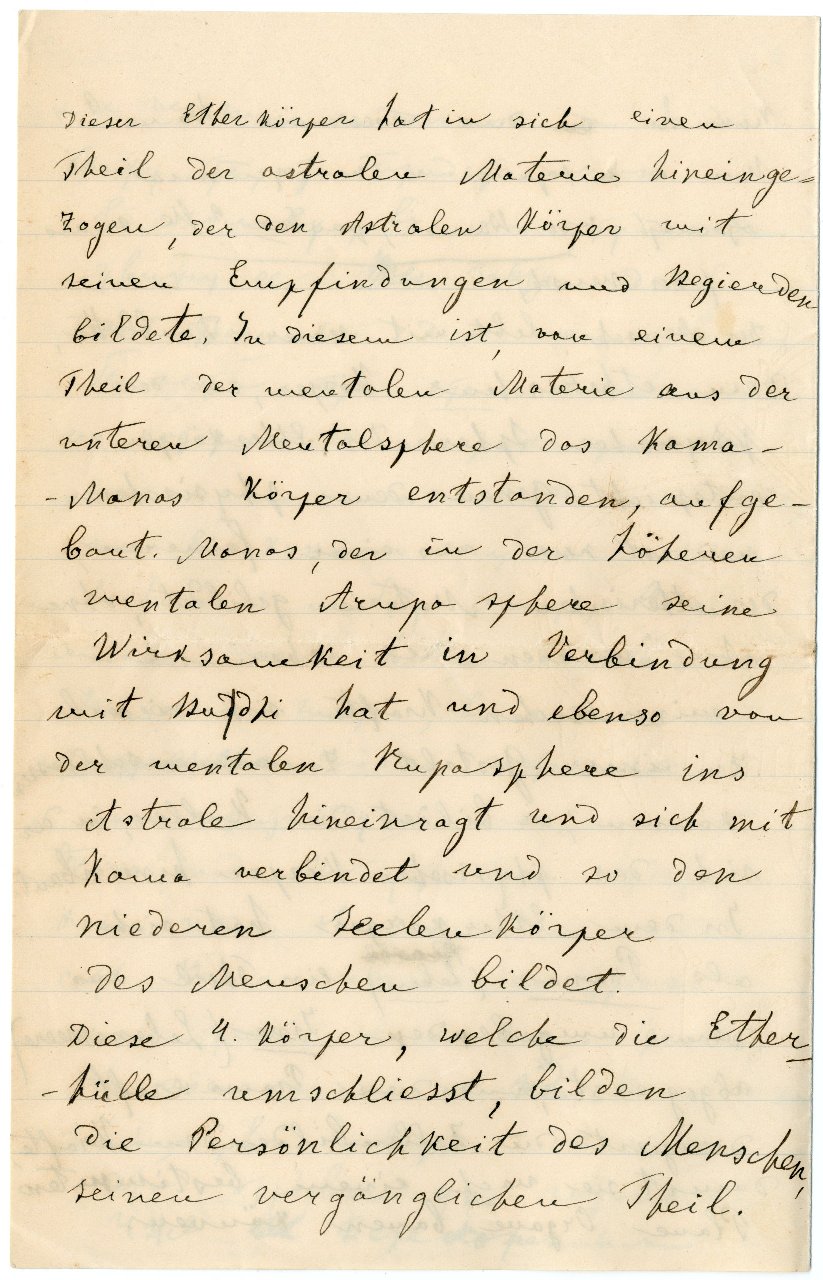 Dieser Etherkörper hat in sich einen
Theil der astralen Materie hineinge-
zogen, der den Astralen Körper mit
seinen Empfindungen und Begierden
bildete. In diesem ist, von einem
Theil der mentalen Materie aus der
unteren Mentalsphere das Kama-
-Manas Körper entstanden, aufge-
baut. Manas, der in der höheren
mentalen Arupa sphere seine
Wirksamkeit in Verbindung
mit Budhi hat und ebenso von
der mentalen Rupasphere ins
Astrale hineinragt und sich mit
Kama verbindet und so den
niederen Seelenkörper
des Menschen bildet.
Diese 4. Körper, welche die Ether-
-hülle umschliesst, bilden
die Persönlichkeit des Menschen,
seinen vergänglichen Theil.